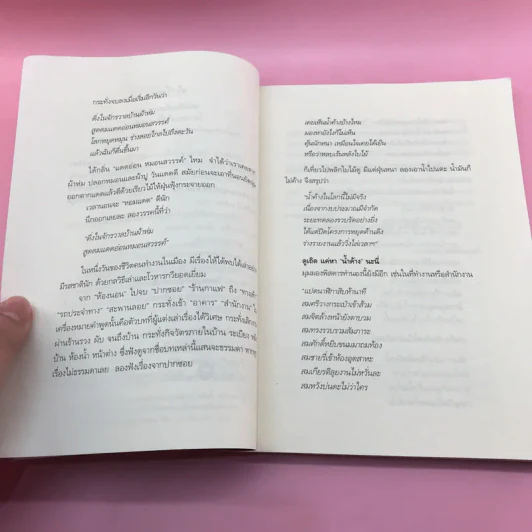 กระทั่งจบลงเมื่อเริ่มอีกวันว่า
ดึงในจักรวาลบ้านผ้าห่ม
สูดดมแดดอ่อนหมอนสวรรค์
โลกหยุดหมุน ร่างลอยไกลไปถึงตะวัน
แล้วฉันก็ตื่นขึ้นมา
ได้กลิ่น "แดดอ่อน หมอนสวรรค์" ไหม จำได้ว่าเราเคย
ผ้าห่ม ปลอกหมอนและผ้าปู วันแดดดี สมัยก่อนจะเอาที่นอน
ออกตากแดดแล้วตีด้วยเรียวไม้ให้ฝุ่นฟุ้งกระจายออก
เวลานอนจะ "หอมแดด" ดีนัก
นึกออกเลยละ ลองวรรคนี้ที่ว่า
"ดึงในจักรวาลบ้านผ้าห่ม
สูดดมแดดอ่อนหมอนสวรรค์"
ในหนึ่งวันของชีวิตคนทำงานในเมือง มีเรื่องให้ได้พบได้
มีรสชาตินัก ด้วยกลวิธีเล่าและโวหารกวียอดเยี่ยม
จาก "ห้องนอน" ไปจบ "ปากซอย" "ร้านกาแฟ" ถึง
"รถประจำทาง" "สะพานลอย" กระทั่งเข้า "อาคาร" "สำนักงาน"
เครื่องหมายคำพูดนั้นคือตัวบทที่ผู้แต่งเล่าเรื่องได้วิเศษ กระทั่ง
ผ่านร้านรวง ผับ จนถึงบ้าน กระทั่งกิจวัตรภายในบ้าน ระเบียง
บ้าน ห้องน้ำ หน้าต่าง ซึ่งฟังดูจากชื่อบทเหล่านี้แสนจะธรรมดา
เรื่องไม่ธรรมดาเลย ลองฟังเรื่องจากปากซอย
เคยเห็นน้ำค้างบ้างไหม
มองหายังไงก็ไม่เห็น
ตุ้มนักไหนหนา เหมือนใจเคยได้เย็น
หรือว่าหลบเร้นหลังใบไม้
ก็เดี๋ยวไปพลิกใบไม้ดู มีแต่ฝุ่นหนา ลองเอาน้ำไปแตะ น้ำมันก็
ไม่ค้าง จึงสรุปว่า
"น้ำค้างในโลกนี้ไม่มีจริง
เนื่องจากงบประมาณมีจำกัด
ระยะทดลองรวบรัดอย่างยิ่ง
ได้แต่ปิดโครงการหยุดค้านติง
ร่างรายงานแล้ววิ่งไล่เวลาฯ"
ดูเถิด แค่หา 'น้ำค้าง' นะนี่
มุมมองพิสดารทำนองนี้ยังมีอีก เช่นในที่ทำงานหรือสำนักงาน
"แปดนาฬิกาสิบห้านาที
สมศรีวางกระเป๋าเข้าตัวม
สมจิตล้างหน้ายังตาบวม
สมทรงรวบรวมสัมภาระ
สมศักดิ์หยิบขนมมาถมท้อง
สมชายรี่เข้าห้องอุตสาหะ
สมเกียรติลุยงานไม่หวั่นละ
สมหวังบ่นดะไม่ว่าใคร